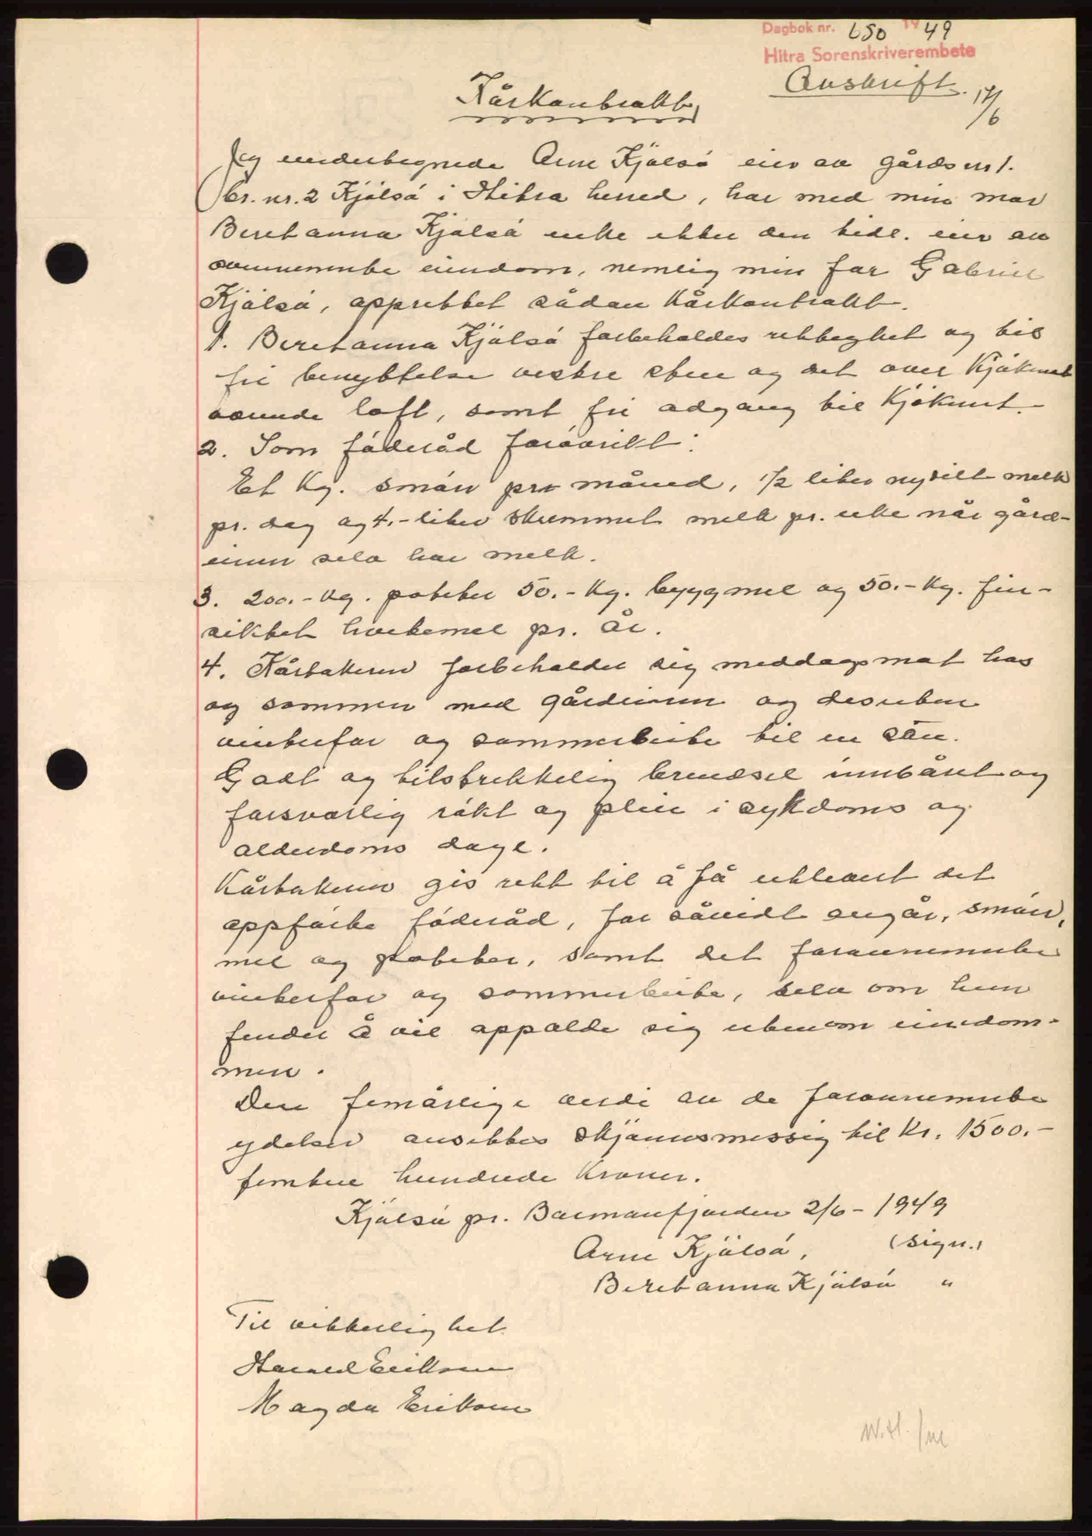 Dagbok nr. 650 1949
Hitra Sorenskriverembete
Avskrift. 17/6
Kårkontrakt
Jeg undertegnede Arne Kjølsø eier av gårdsnr 1.
br. nr. 2 Kjølsø i Hitra herred, har med min mor
Beretanna Kjølsø enke etter den tidl. eier av
samme eiendom, nemlig min far Gabriel
Kjølsø, opprettet sådan kårkontrakt.
1. Beretanna Kjølsø forbeholdes rettighet og til
fri benyttelse vestre stue og det over kjøkenet
værende loft, samt fri adgang til kjøkenet.
2. Som føderåd forøvrikt:
Et kg. smør pr måned, 1/2 liter nysilt melk
pr. dag og 4.- liter skummet melk pr. uke når gård-
eieren selv har melk.
3. 200.- kg. poteter 50.- kg. byggmel og 50.- kg. fin-
siktet hvetemel pr. År.
4. Kårtakeren forbeholder sig meddagsmat hos
og sammen med gårdeieren og desuten
vinterfor og sommerbeite til en søu.
Godt og tilstrekkelig brendsel innbåret og
forsvarlig røkt og pleie i sykdoms og
alderdoms dage.
Kårtakeren gis rett til å få utlevert det
oppførte føderåd, for såvidt angår, smør,
mel og poteter, samt det forannemnte
vinterfor og sommerbeite, selv om hun
finder å vil oppolde sig utenom eiendom-
men.
Den femårlige verdi av de forannemnte
ydelser ansettes skjønnsmessig til kr. 1500.-
femten hundrede kroner.
Kjølsø pr. Barmanfjorden 2/6 - 1949
Arne Kjølsø. (sign.)
Beretanna Kjølsø "
Til vitterlighet
Harald Eriksen
Magda Eriksen